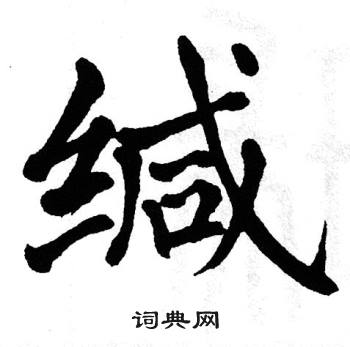 缄
词典网